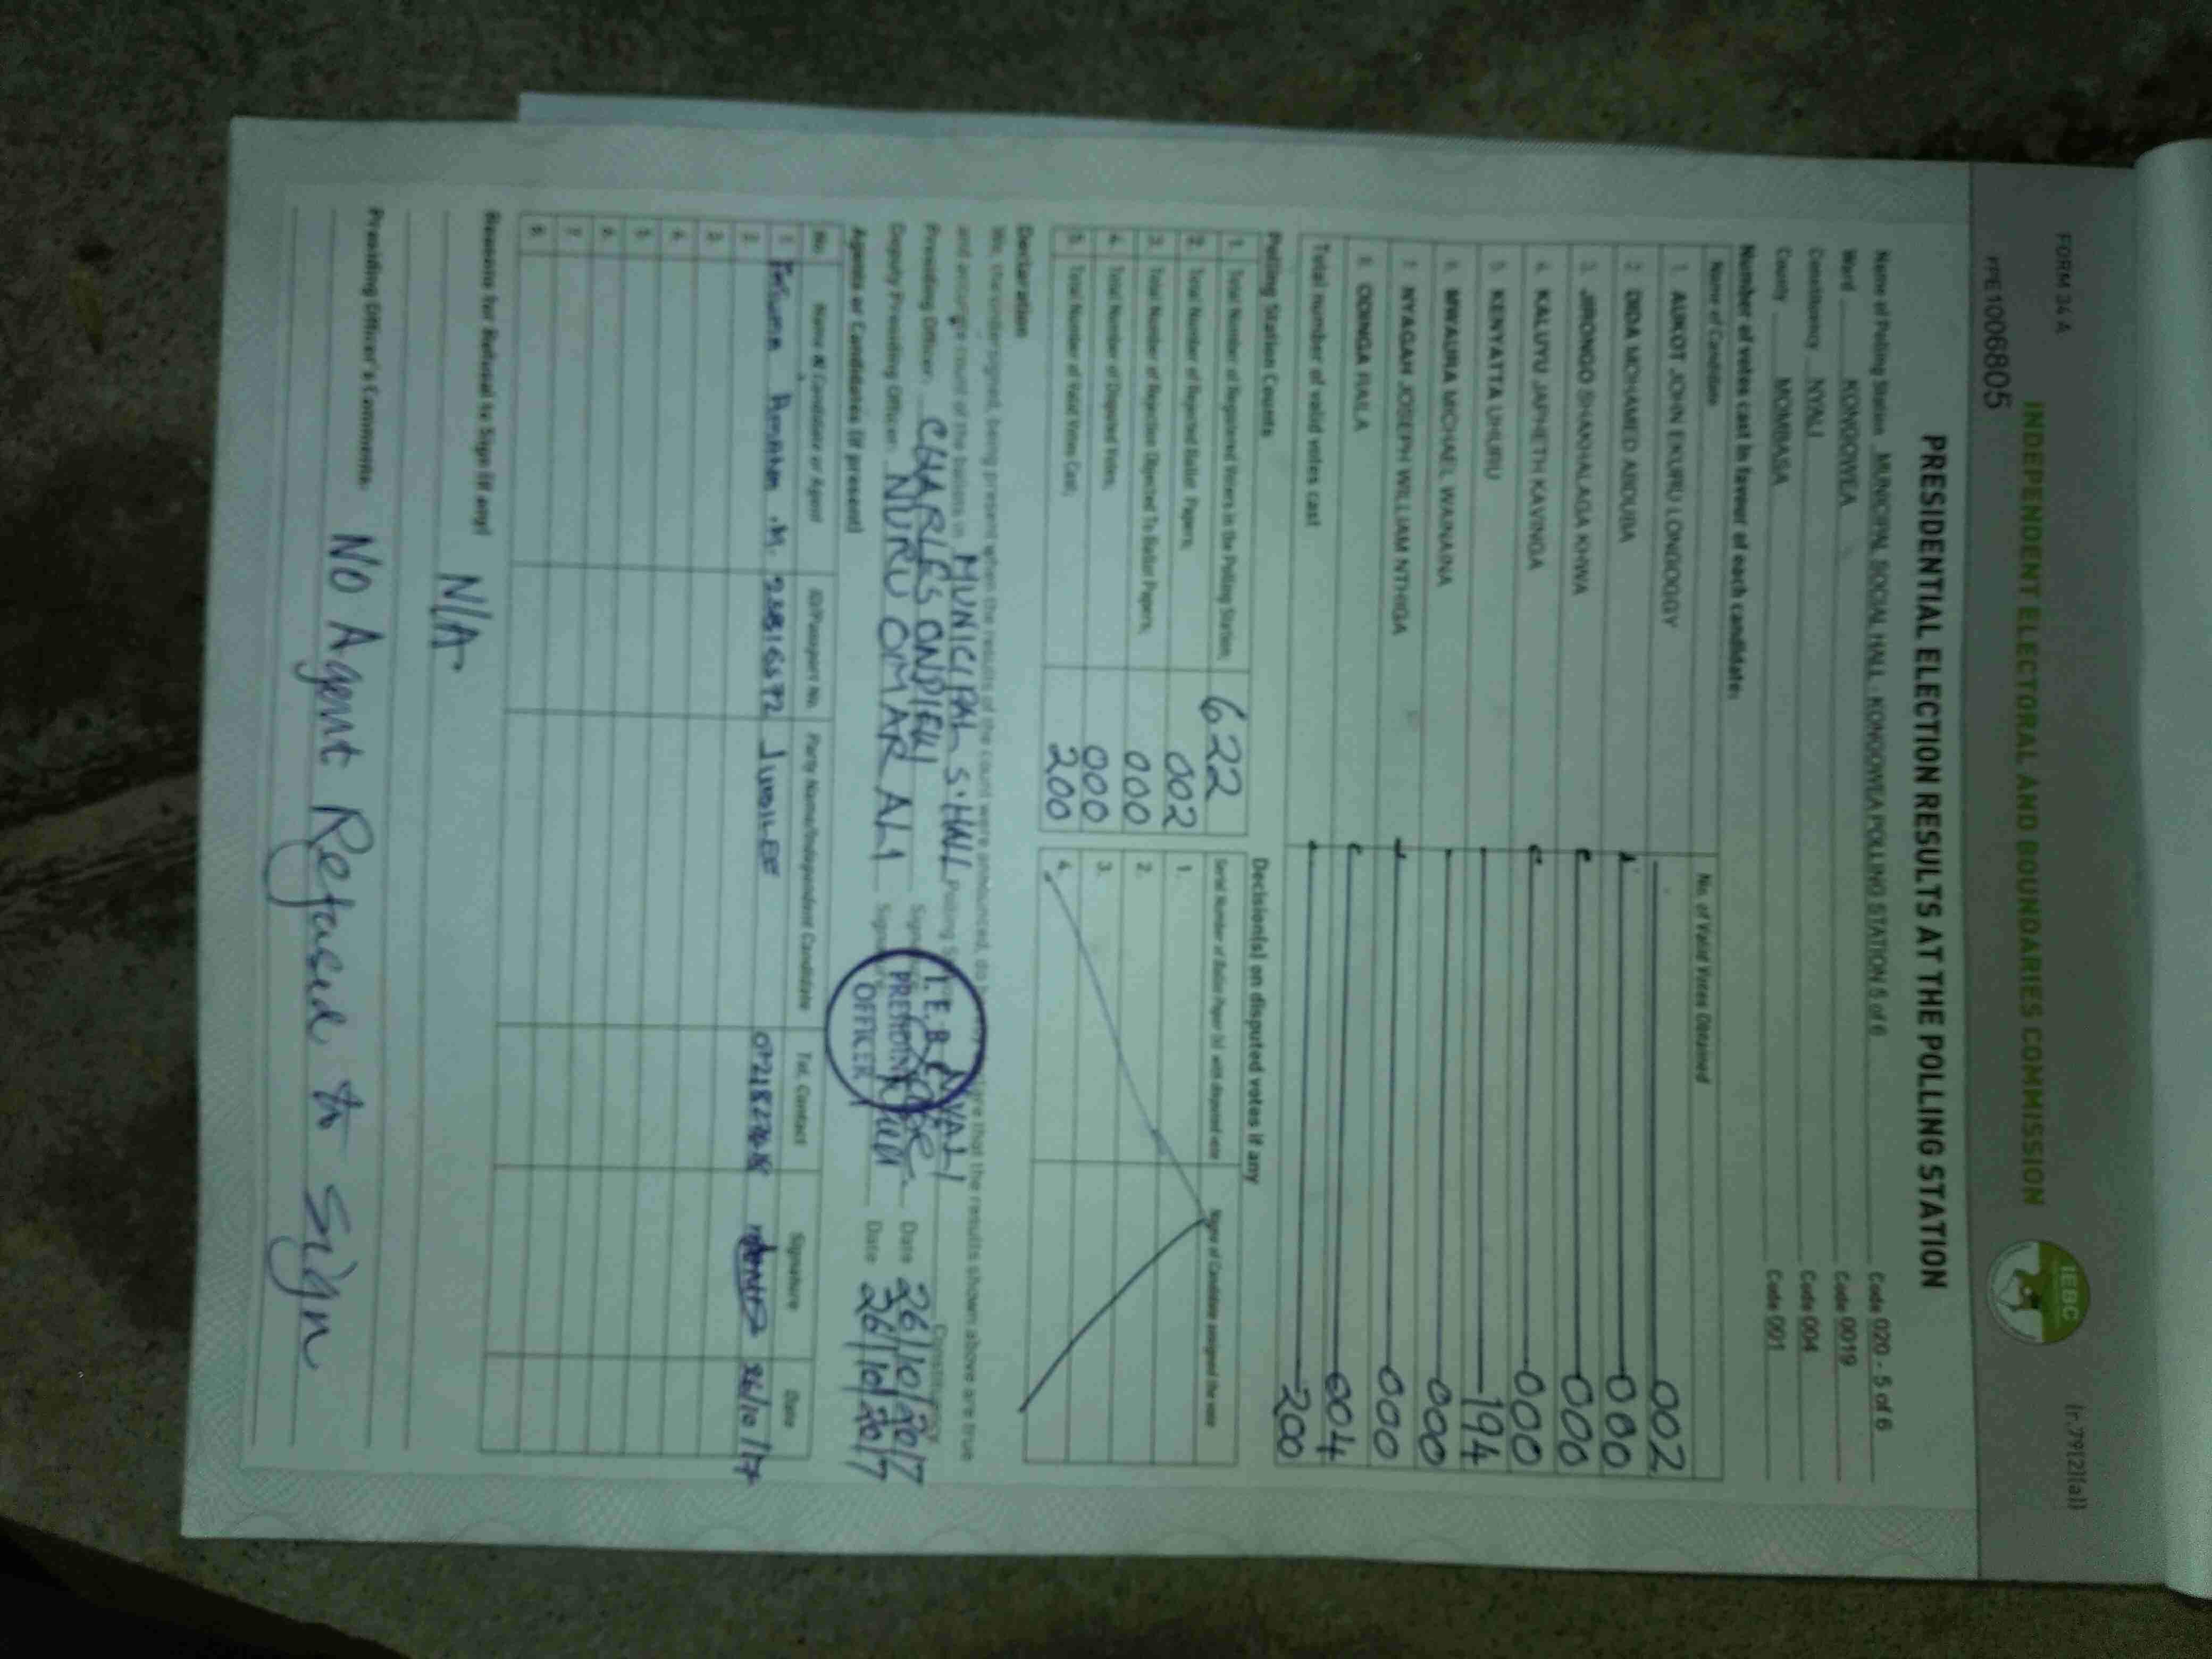 FORM 34 A
(r.79(2)(a))
INDEPENDENT ELECTORAL AND BOUNDARIES COMMISSION
IEBC
PRESIDENTIAL ELECTION RESULTS AT THE POLLING STATION
Name of Polling Station MUNICIPAL SOCIAL HALL - KONGOWEA POLLING STATION 5 of 6 Code 020 - 5 of 6
Ward KONGOWEA Code 0019
Constituency NYALI Code 004
County MOMBASA Code 001
Number of votes cast in favour of each candidate:
Name of Candidate No. of Valid Votes Obtained
1. AUKOT JOHN EKURU LONGOGGY 002
2. DIDA MOHAMED ABDUBA 000
3. JIRONGO SHAKHALAGA KHWA 000
4. KALUYU JAPHETH KAVINGA 000
5. KENYATTA UHURU 194
6. MWAURA MICHAEL WAINAINA 000
7. NYAGAH JOSEPH WILLIAM NTHIGA 000
8. ODINGA RAILA 004
Total number of valid votes cast 200
Polling Station Counts
1. Total Number of Registered Voters in the Polling Station; 622
2. Total Number of Rejected Ballot Papers; 002
3. Total Number of Rejection Objected To Ballot Papers; 000
4. Total Number of Disputed Votes; 000
5. Total Number of Valid Votes Cast; 200
Decision(s) on disputed votes if any
Serial Number of Ballot Paper (s) with disputed vote Name of Candidate assigned the vote
1.
2.
3.
4.
Declaration
We, the undersigned, being present when the results of the count were announced, do hereby declare that the results shown above are true
and accurate count of the ballots in MUNICIPAL S. HALL Polling NYALI Constituency
Presiding Officer: CHARLES ONDIEKI Date 26/10/2017
Deputy Presiding Officer: NURU OMAR ALI Date 26/10/2017
I.E.B.C
PRESIDING
OFFICER
Agents or Candidates (if present)
No. Name of Candidate or Agent ID/Passport No. Party Name/Independent Candidate Tel. Contact Signature Date
1. M. JUBILEE 26/10/17
2.
3.
4.
5.
6.
7.
8.
Reasons for Refusal to Sign (if any) N/A.
Presiding Officer's Comments: No Agent Refused to Sign